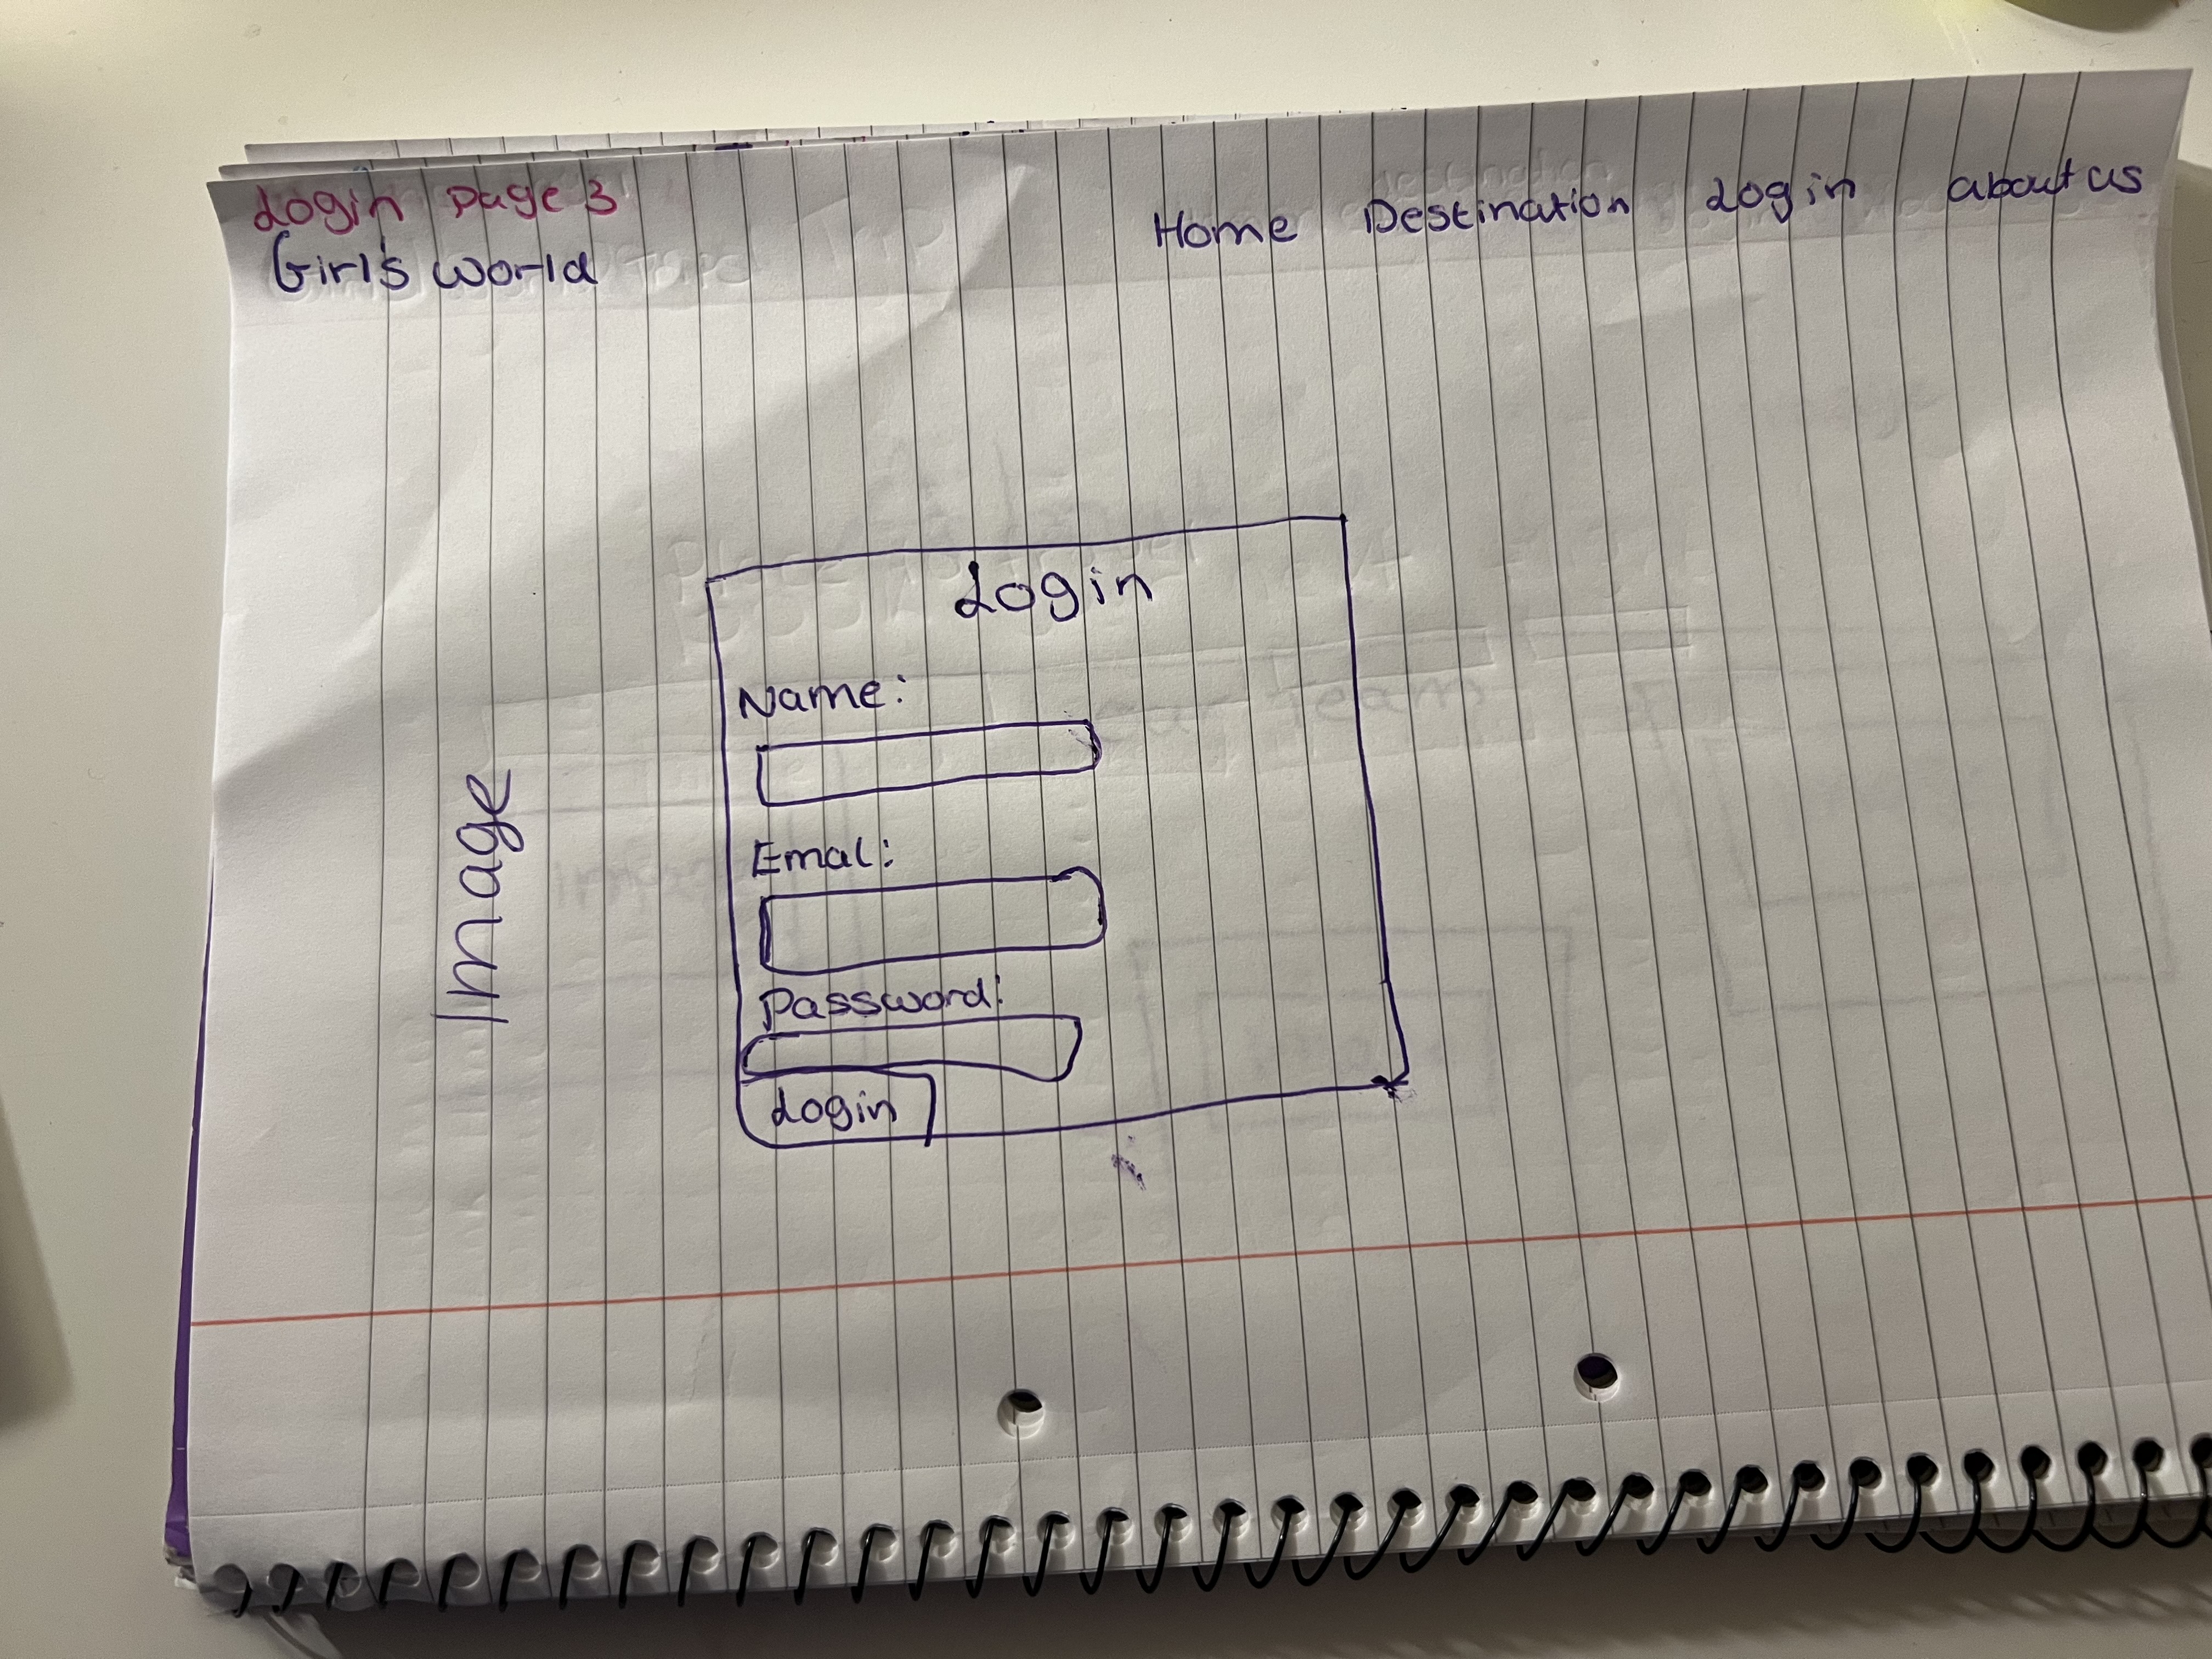 Login page 3
Girls World Home Destination Login about us
Image
Login
Name:
Emal:
Password:
Login